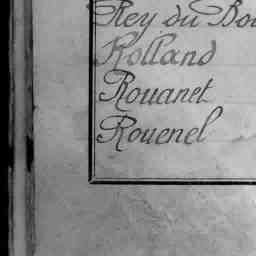 Rey du
Rolland
Rouanet
Rouenel